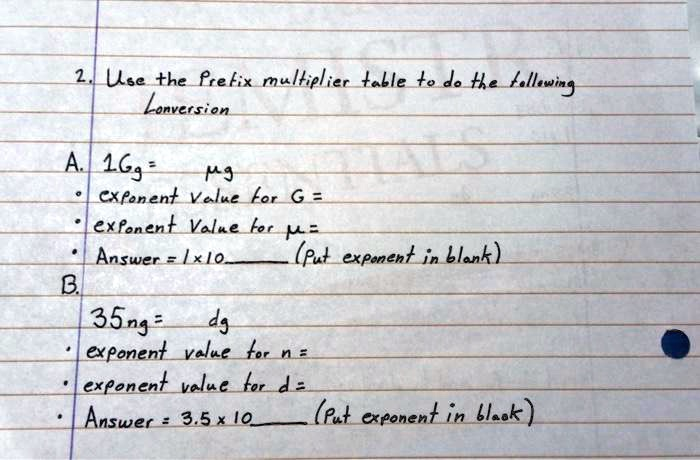 2. Use the Prefix multiplier table to do the following
Conversion
A. 1Gg = μg
• exponent Value for G =
• exponent Value for μ =
• Answer = 1x10______ (Put exponent in blank)
B.
35ng = dg
• exponent value for n =
• exponent value for d =
• Answer = 3.5 x 10______ (Put exponent in blank)